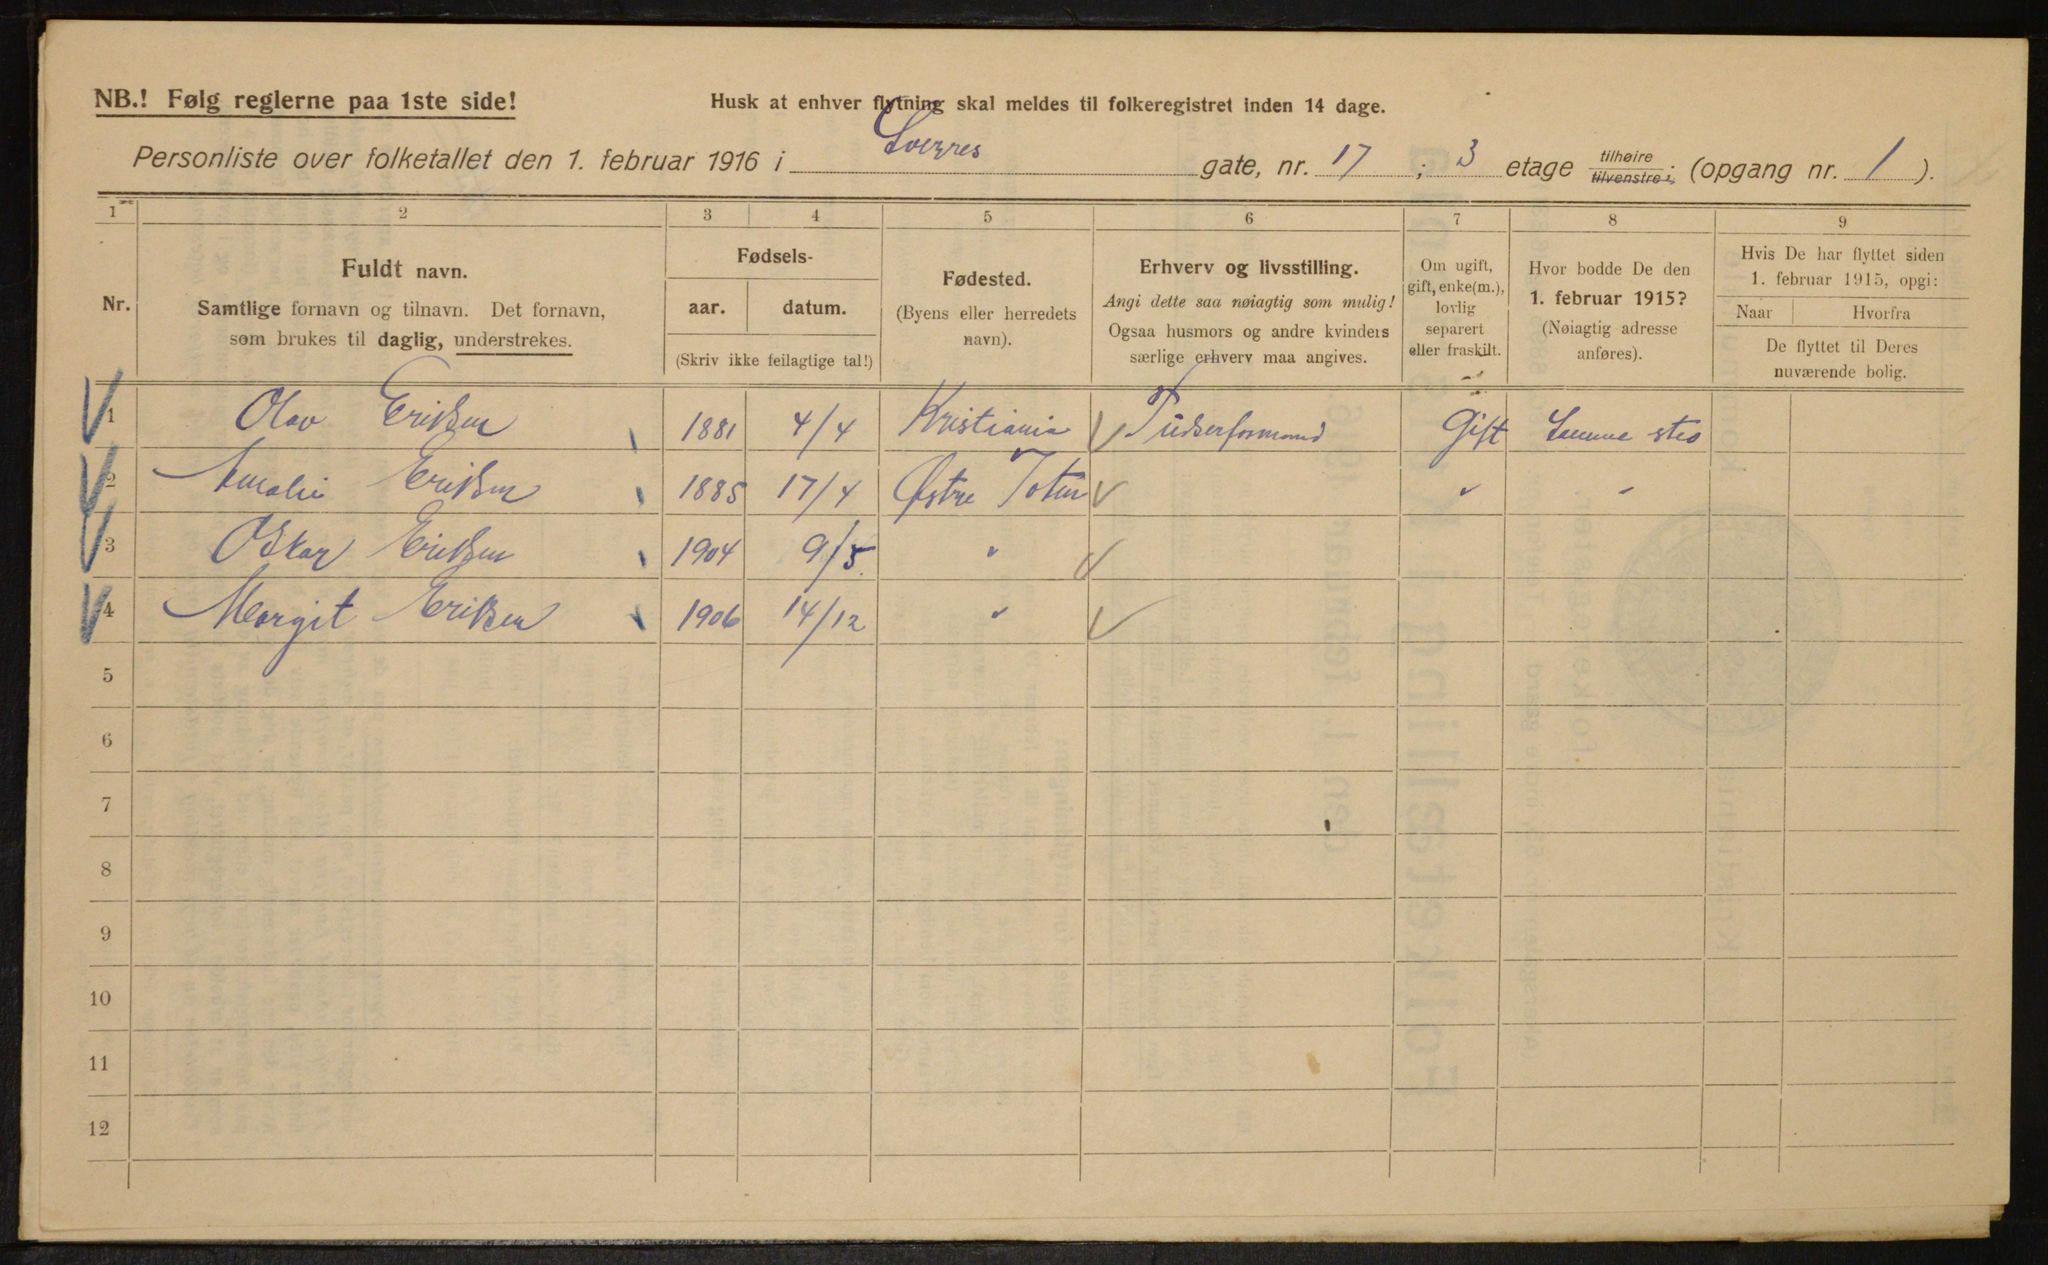 NB.! Følg reglerne paa 1ste side!
Husk at enhver flytning skal meldes til folkeregistret inden 14 dage.
Personliste over folketallet den 1. februar 1916 i Sverres gate, nr. 17 ; 3 etage tilhøire tilvenstre; (opgang nr. 1 ).
1 2 3 4 5 6 7 8 9
Nr.
Fuldt navn.
Samtlige fornavn og tilnavn. Det fornavn,
som brukes til daglig, understrekes.
Fødsels-
aar. datum.
(Skriv ikke feilagtige tal!)
Fødested.
(Byens eller herredets
navn).
Erhverv og livsstilling.
Angi dette saa nøiagtig som mulig!
Ogsaa husmors og andre kvinders
særlige erhverv maa angives.
Om ugift,
gift, enke(m.),
lovlig
separert
eller fraskilt.
Hvor bodde De den
1. februar 1915?
(Nøiagtig adresse
anføres).
Hvis De har flyttet siden
1. februar 1915, opgi:
Naar Hvorfra
De flyttet til Deres
nuværende bolig.
1 Olav Eriksen 1881 4/4 Kristiania Gift Samme sted
2 Amalie Eriksen 1885 17/4 Østre Toten " "
3 Oskar Eriksen 1904 9/5 "
4 Margit Eriksen 1906 14/12 "
5
6
7
8
9
10
11
12